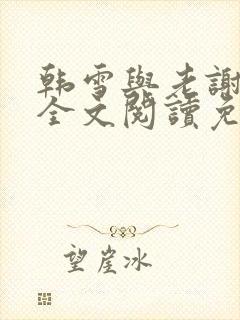 韩雪與老謝
全文閱讀免
望崖冰